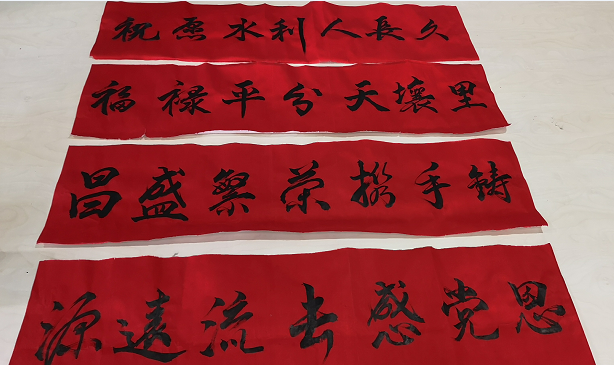 祝愿水利人長久
福禄平分天壤里
昌盛繁荣携手铸
源遠流長感党恩